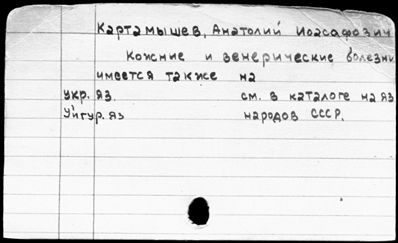 Картамышев, Анатолий Иоасафович
Кожние и венерические болезни
имеется также на
укр. яз. см. в каталоге на яз
Уйгур. яз народов СССР.